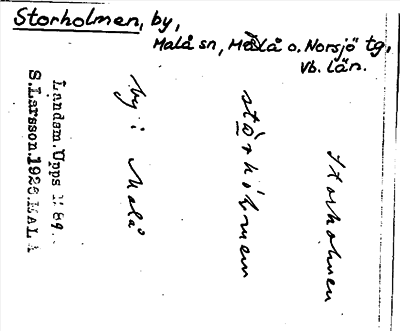 Storholmen, by,
Malå sn, Malå o. Norsjö tg,
Vb. län.
Storholmen
by i Malå
Landsm. Upps 1189.
S. Larsson. 1928. MALÅ